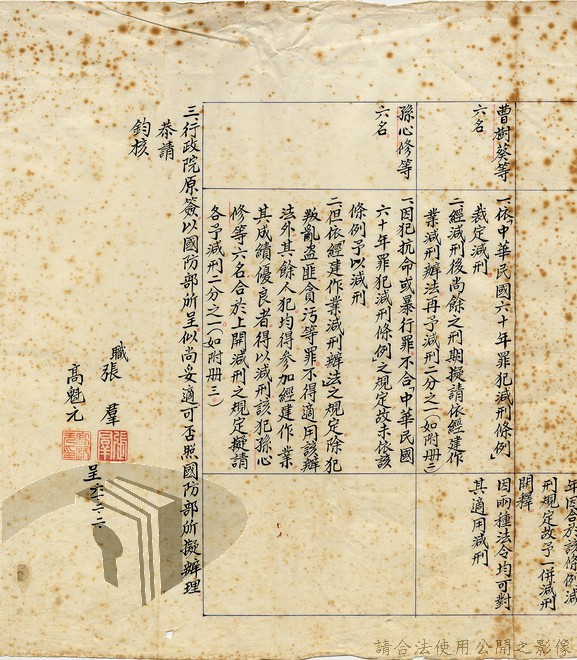 年因合於該條例減
刑規定故予一併減刑
開釋
曹樹葵等
六名
一、依「中華民國六十年罪犯減刑條例」
裁定減刑
二、經減刑後尚餘之刑期擬請依經建作
業減刑辦法再予減刑二分之一(如附册二)
因兩種法令均可對
其適用減刑
孫心修等
六名
一、因犯抗命或暴行罪不合「中華民國
六十年罪犯減刑條例」之規定故未依該
條例予以減刑
二、但依「經建作業減刑辦法」之規定除犯
叛亂盜匪貪污等罪不得適用該辦
法外其餘人犯均得參加經建作業
其成績優良者得以減刑該犯孫心
修等六名合於上開減刑之規定擬請
各予減刑二分之一(如附册三)
三、行政院原簽以國防部所呈似尚妥適可否照國防部所擬辦理
恭請
鈞核
職 張羣
高魁元
呈 六、三、二
請合法使用公開之影像